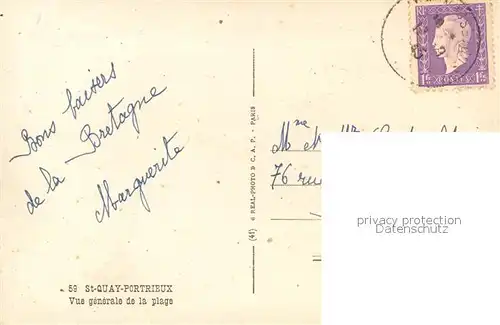 Bons baisers
de la Bretagne
Marguerite
59 St-QUAY-PORTRIEUX
Vue générale de la plage
(41) é REAL-PHOTO D C. A. P. - PARIS
RF
1F POSTES 1F
Mme
76 rue
privacy protection
Datenschutz